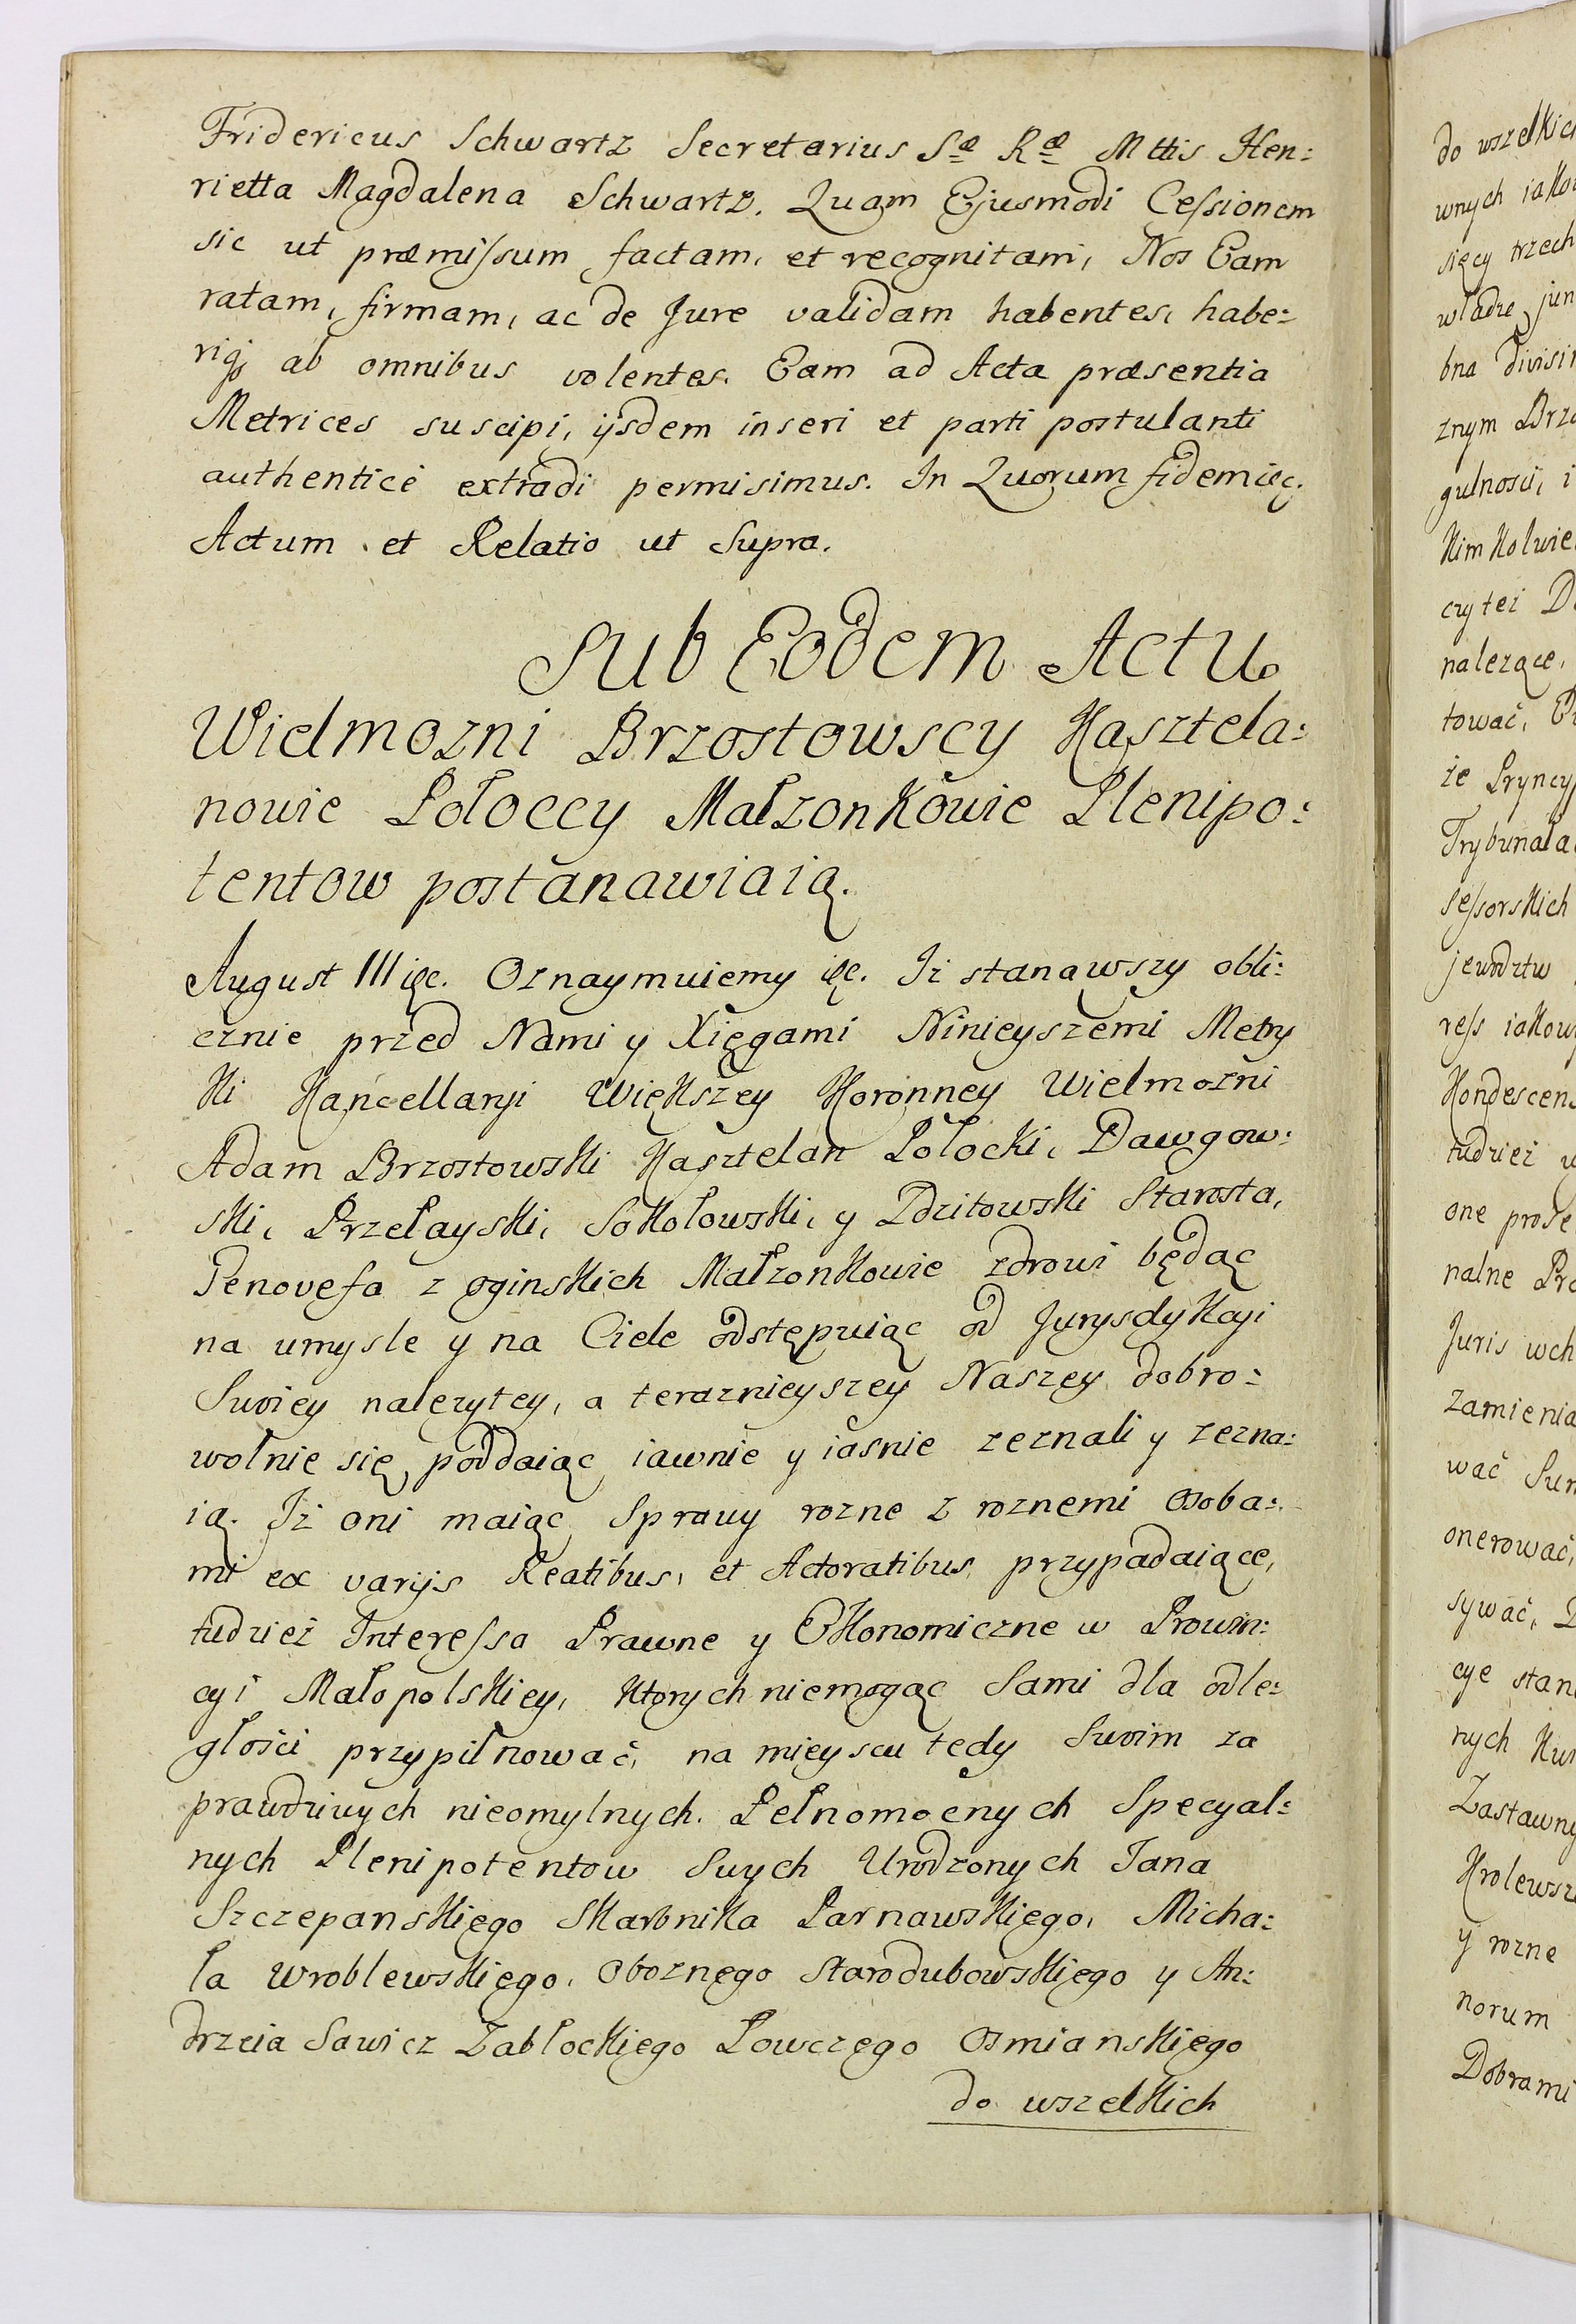 Fridericus Schwartz Secretarius Sæ Ræ Mttis Hen:
rietta Magdalena Schwartz. Quam Ejusmodi Cessionem
sic ut præmissum factam, et recognitam, Nos Eam
ratam, firmam, ac de Jure validam habentes, habe:
riq; ab omnibus volentes. Eam ad Acta præsentia
Metrices suscipi, ijsdem inseri et parti postulanti
authentice extradi permisimus. In Quorum fidem &c.
Actum et Relatio ut Supra.
Sub Eodem Actu
Wielmozni Brzostowscy Kasztela:
nowie Połoccy Małzonkowie Plenipo:
tentow postanawiaią.
August III &c. Oznaymuiemy &c. Iż stanąwszy obli:
cznie przed Nami y Xięgami Ninieyszemi Metry
ki Kancellaryi Większey Koronney Wielmozni
Adam Brzostowski Kasztelan Połocki, Dawgow:
ski, Przełayski, Sokołowski, y Zdzitowski Starosta,
Genovefa z oginskich Małzonkowie zdrowi będąc
na umysle y na Ciele odstępuiąc od Jurysdykcyi
Swoiey nalezytey, a teraznieyszey Naszey dobro:
wolnie się poddaiąc iawnie y iasnie zeznali y zezna:
ią. Iż oni maiąc Sprawy rozne z roznemi osoba:
mi ex varijs Reatibus, et Actoratibus przypadaiące,
tudzież Interessa Prawne y Ekonomiczne w Prowin:
cyi Małopolskiey, ktorych niemogąc Sami dla odle:
głości przypilnować, na mieyscu tedy Swoim za
prawdziwych nieomylnych. Pełnomocnych Specyal:
nych Plenipotentow Swych Urodzonych Jana
Szczepanskiego Skarbnika Parnawskiego, Micha:
ła Wroblewskiego, Oboznego Starodubowskiego y An:
drzeia Sawicz Zabłockiego Łowczego Osmianskiego
do wszelkich
do wszelkich
wnych
sięcy trzech
władzę
bna
znym
gulnosci, i
czy też
należące,
tować,
że
sessorskich
jewodztw
ress
tudzież
one
nalne
Juris
wać
onerować,
sywać,
cye
nych
y rozne
norum
Dobrami